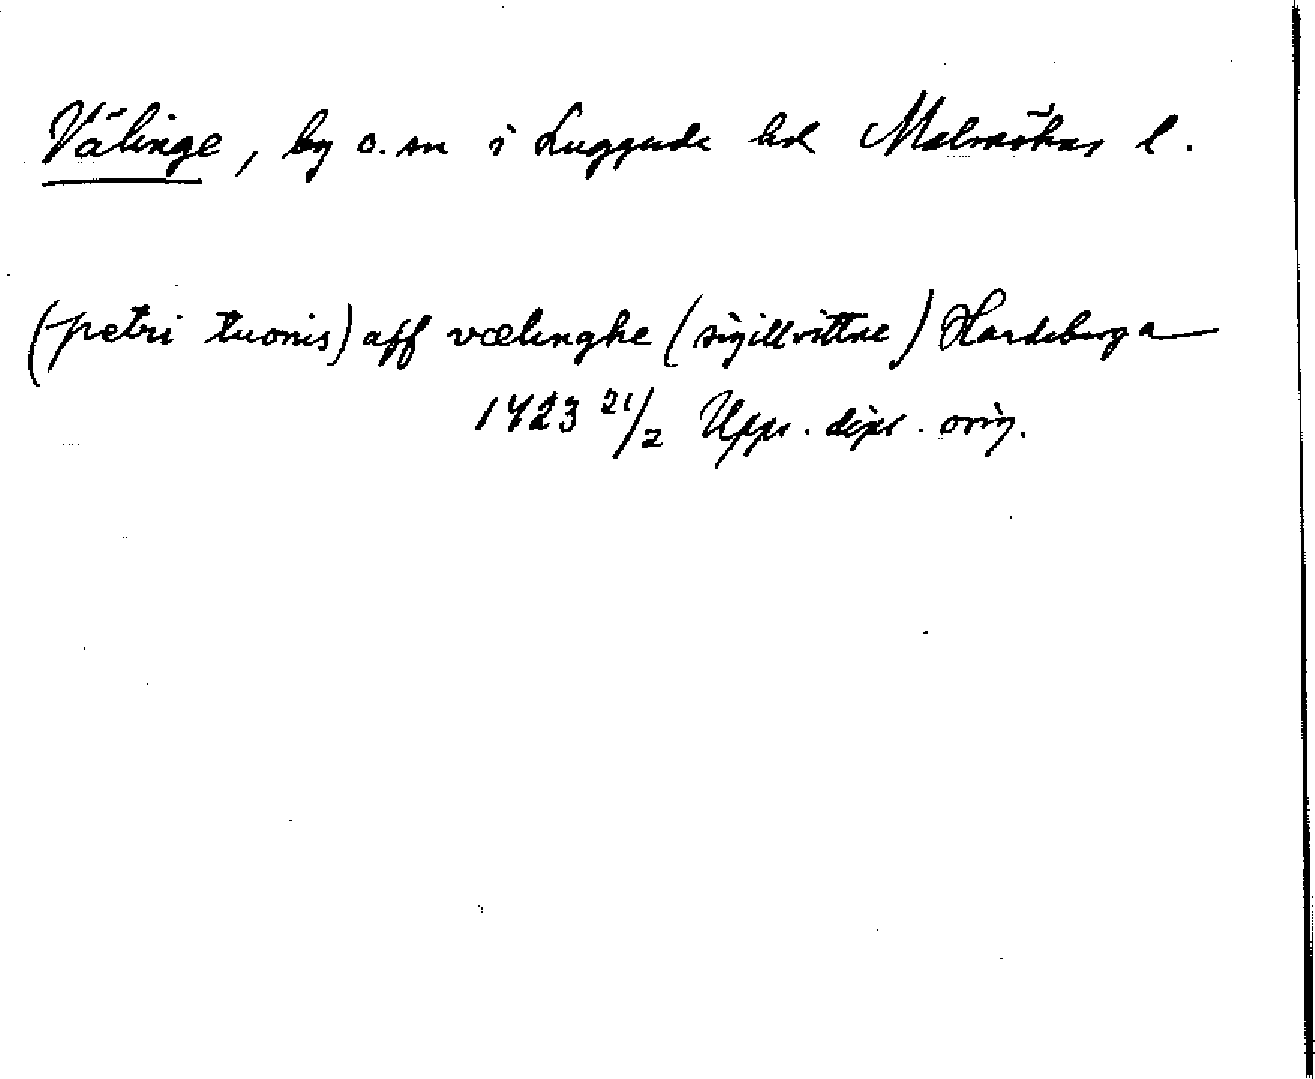 Välinge, by o. sn i Luggude hd Malmöhus l.
(petri tuonis) aff vælinghe (sigillvittne) Hardeberga
1423 21/2 Upps. dipl. orig.